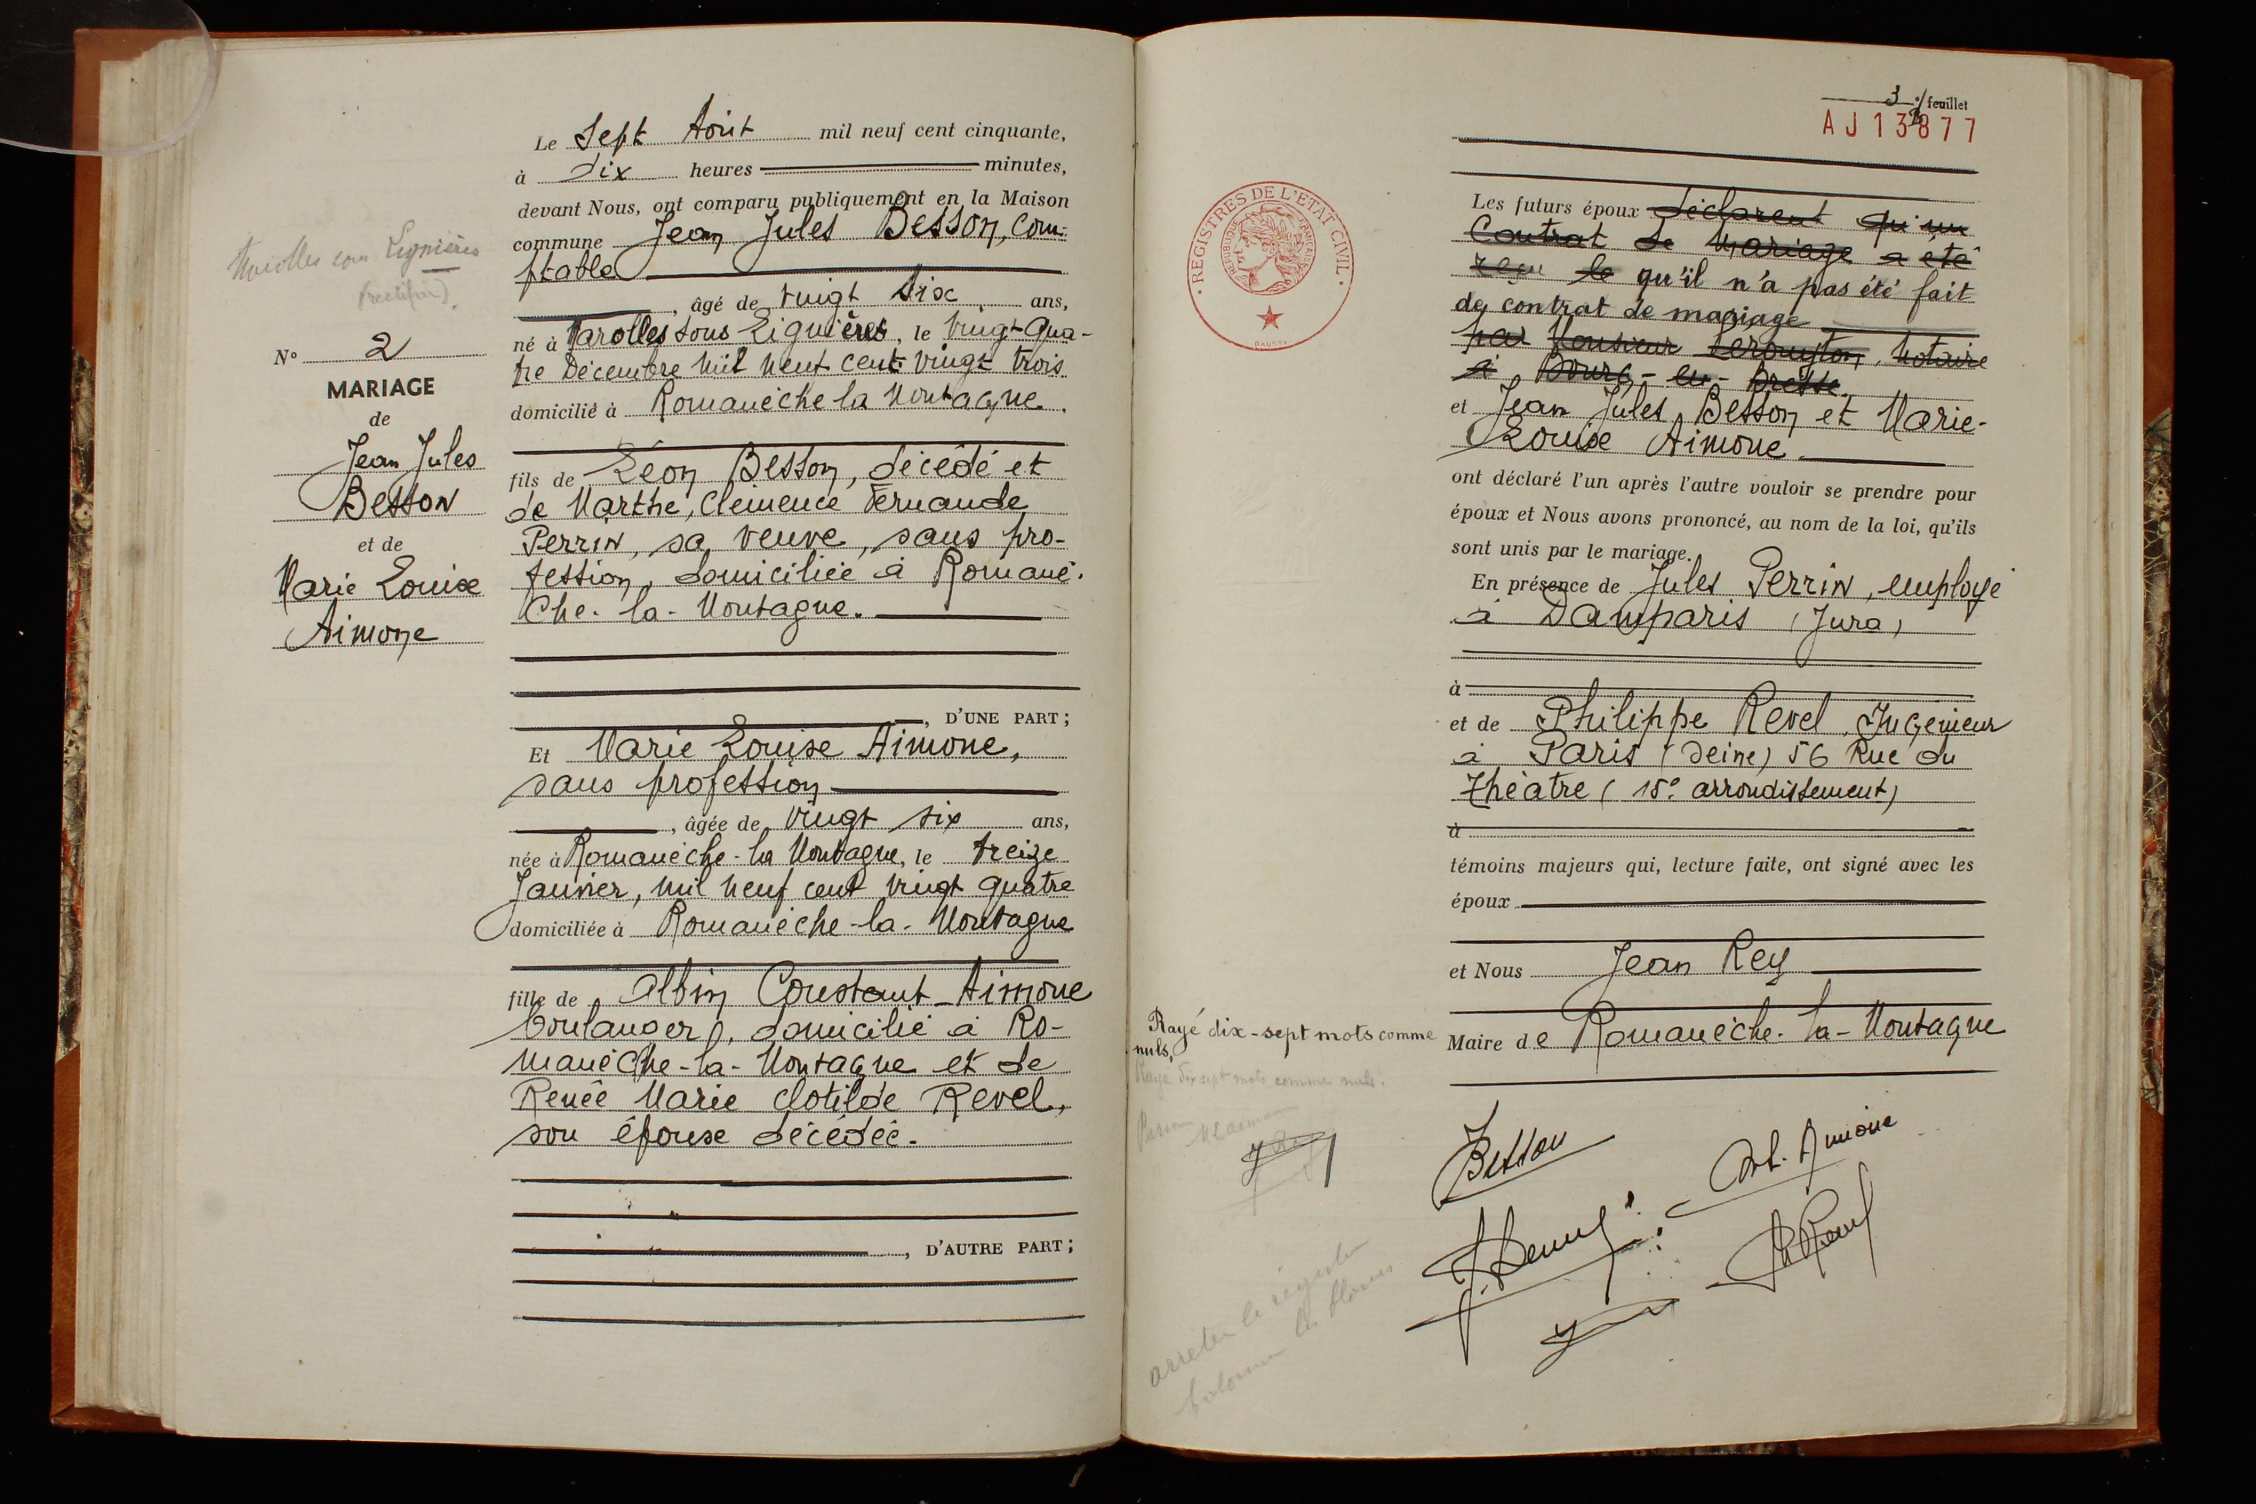 Le Sept Août mil neuf cent cinquante,
à dix heures minutes,
devant Nous, ont comparu publiquement en la Maison
commune Jean Jules Besson, com-
ptable
, âgé de vingt six ans,
né à Marolles sous Lignières, le vingt-qua-
tre Décembre mil neuf cent vingt trois
domicilié à Romanèche la Montagne.
fils de Léon Besson, décédé et
de Marthe, Clémence Fernande
Perrin, sa veuve, sans pro-
fession, domiciliée à Romanè-
che-la-Montagne.
, D'UNE PART;
Et Marie Louise Aimone,
sans profession
, âgée de vingt six ans,
née à Romanèche-la Montagne, le treize
Janvier, mil neuf cent vingt quatre
domiciliée à Romanèche-la-Montagne
fille de Albin Constant Aimone
boulanger, domicilié à Ro-
manèche-la-Montagne et de
Renée Marie Clotilde Revel,
son épouse décédée.
, D'AUTRE PART;
Marolles sous Lignières
(rectifié)
N° 2
MARIAGE
de
Jean Jules
Besson
et de
Marie Louise
Aimone
3 feuillet
AJ13877
REGISTRES DE L'ETAT CIVIL
REPUBLIQUE FRANCAISE
Les futurs époux déclarent qu'un
Contrat de Mariage a été
reçu le qu'il n'a pas été fait
de contrat de mariage
par Monsieur notaire
à Bourg-en-Bresse
et Jean Jules Besson et Marie-
Louise Aimone
ont déclaré l'un après l'autre vouloir se prendre pour
époux et Nous avons prononcé, au nom de la loi, qu'ils
sont unis par le mariage.
En présence de Jules Perrin, employé
à Damparis (Jura)
à
et de Philippe Revel, Ingénieur
à Paris (Seine) 56 Rue du
Théâtre (15e arrondissement)
à
témoins majeurs qui, lecture faite, ont signé avec les
époux
et Nous Jean Rey
Maire de Romanèche-la-Montagne
Rayé dix-sept mots comme
nuls.
Rayé dix sept mots comme nuls.
Besson
Aimone
Ph Revel
arrêter le registre